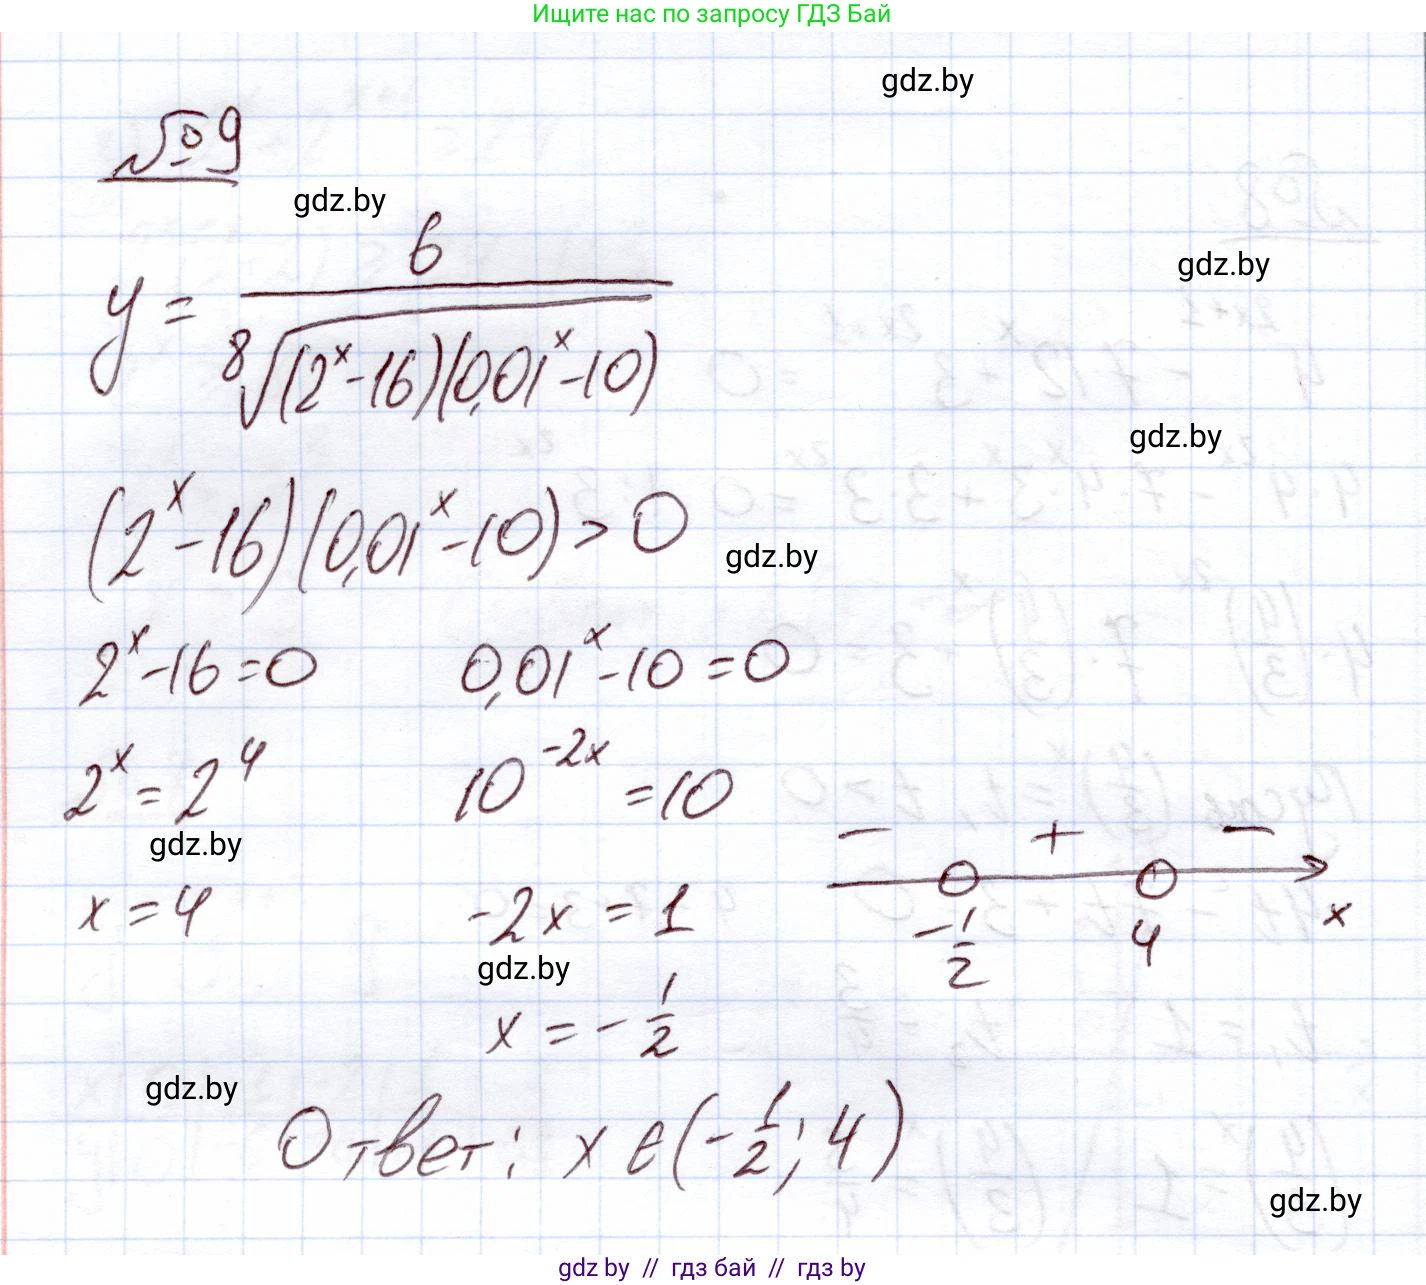 Ищите нас по запросу ГДЗ Бай
gdz.by
№9
gdz.by
y = 6 / ⁸√((2ˣ-16)(0,01ˣ-10))
gdz.by
gdz.by
(2ˣ-16)(0,01ˣ-10) > 0
gdz.by
2ˣ-16=0 0,01ˣ-10=0
2ˣ = 2⁴ 10⁻²ˣ = 10
gdz.by
− + −
x = 4 -2x = 1
-1/2 4 x
gdz.by
x = -1/2
gdz.by
Ответ: x ∈ (-1/2; 4)
gdz.by
gdz.by // гдз бай // гдз by